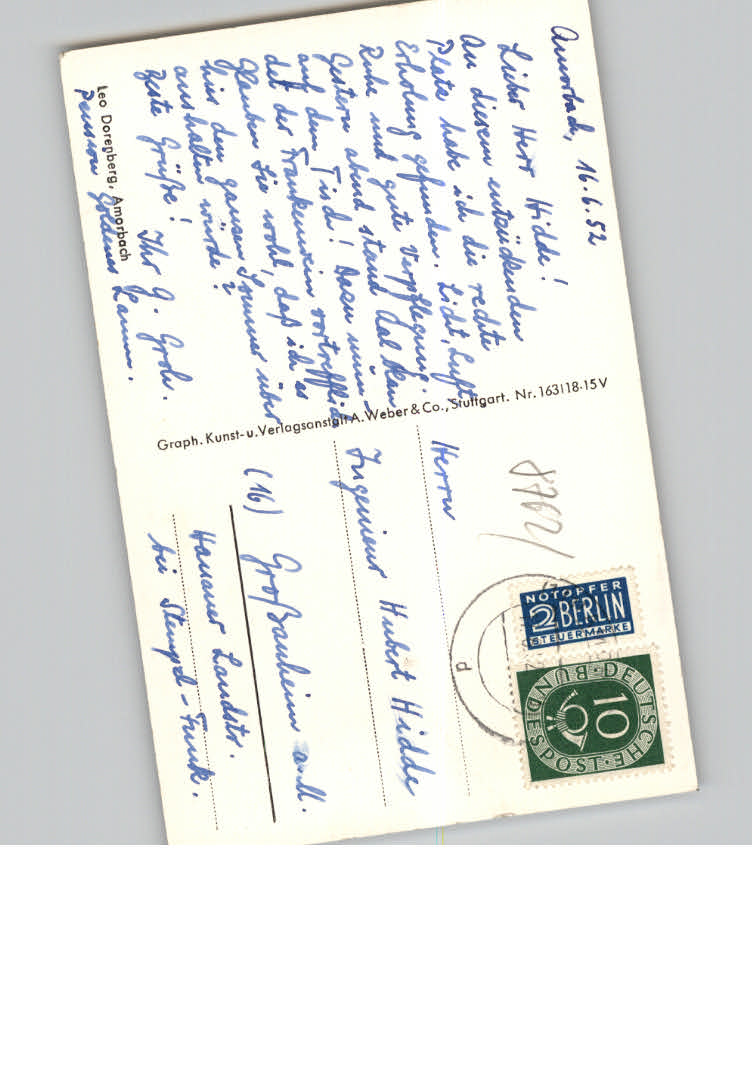 Amorbach, 16.6.52
Lieber Herr Hidde!
An diesem entzückenden
Platz habe ich die rechte
Erholung gefunden. Licht, Luft,
Ruhe und gute Verpflegung.
Gestern abend stand
auf dem Tisch! Dazu
det der Frankenwein vortrefflich
Glauben Sie wohl, daß ich es
hier den ganzen Sommer über
aushalten würde?
Beste Grüße! Ihr G. Groh.
Leo Dorenberg, Amorbach
Pension Goldenes Lamm.
Graph. Kunst- u. Verlagsanstalt A. Weber & Co., Stuttgart. Nr. 163118-15V
8762/
Herrn
Ingenieur Hubert Hidde
(16) Großauheim a.M.
Hanauer Landstr.
bei Stempel-Funk.
NOTOPFER
2 BERLIN
STEUERMARKE
DEUTSCHE BUNDESPOST
10
d